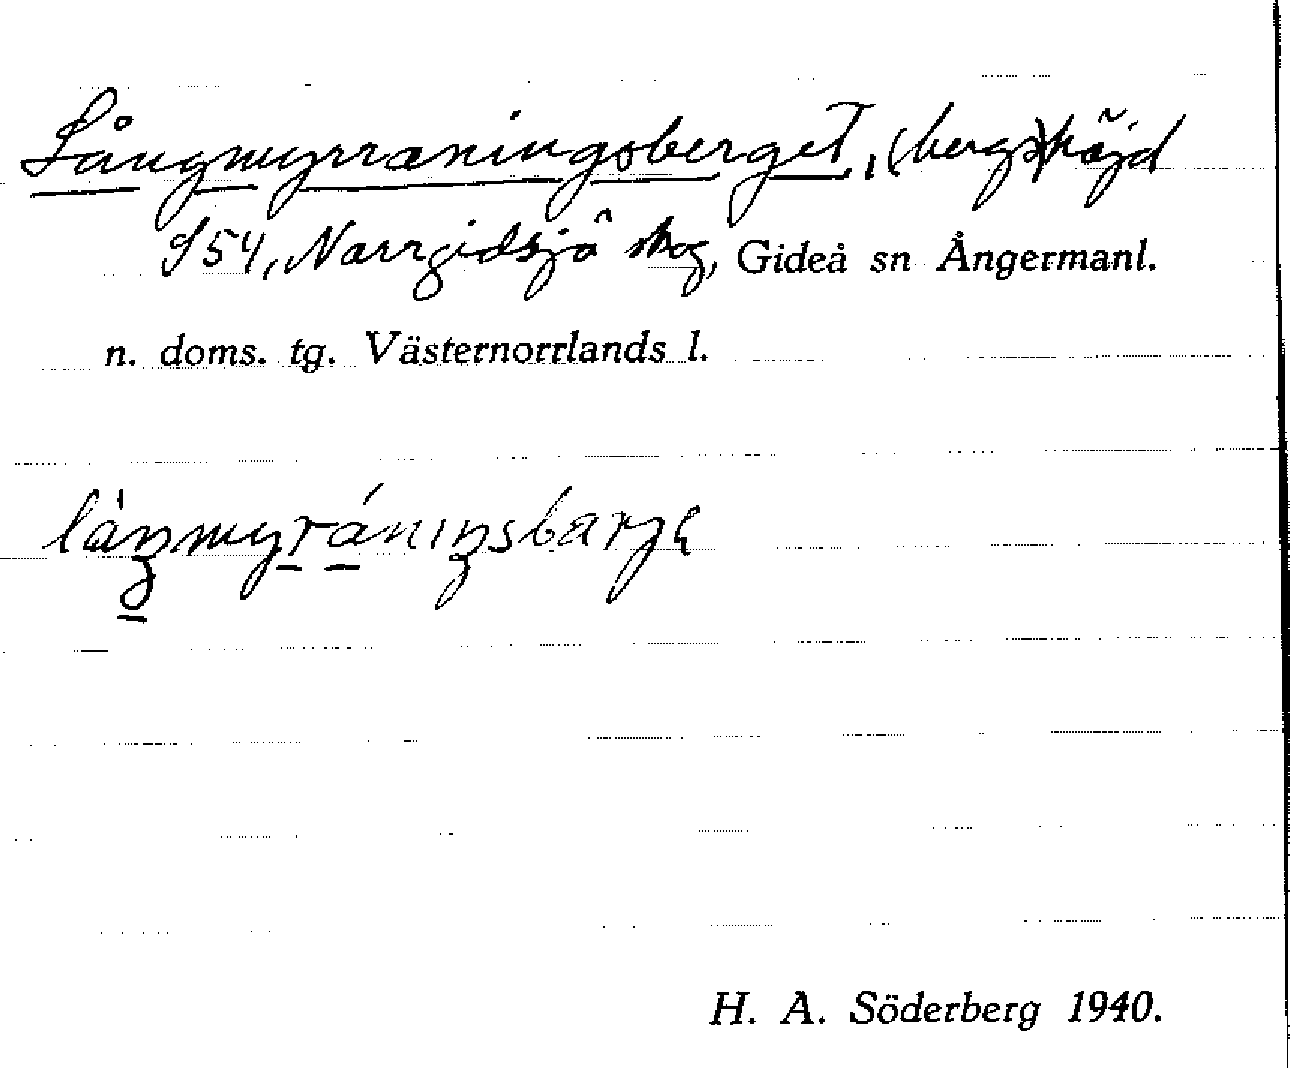 Långmyrraningsberget, (bergs)höjd
954, Norrgidsjö skog, Gideå sn Ångermanl.
n. doms. tg. Västernorrlands l.
låŋmyrániŋsbarjɛ
H. A. Söderberg 1940.